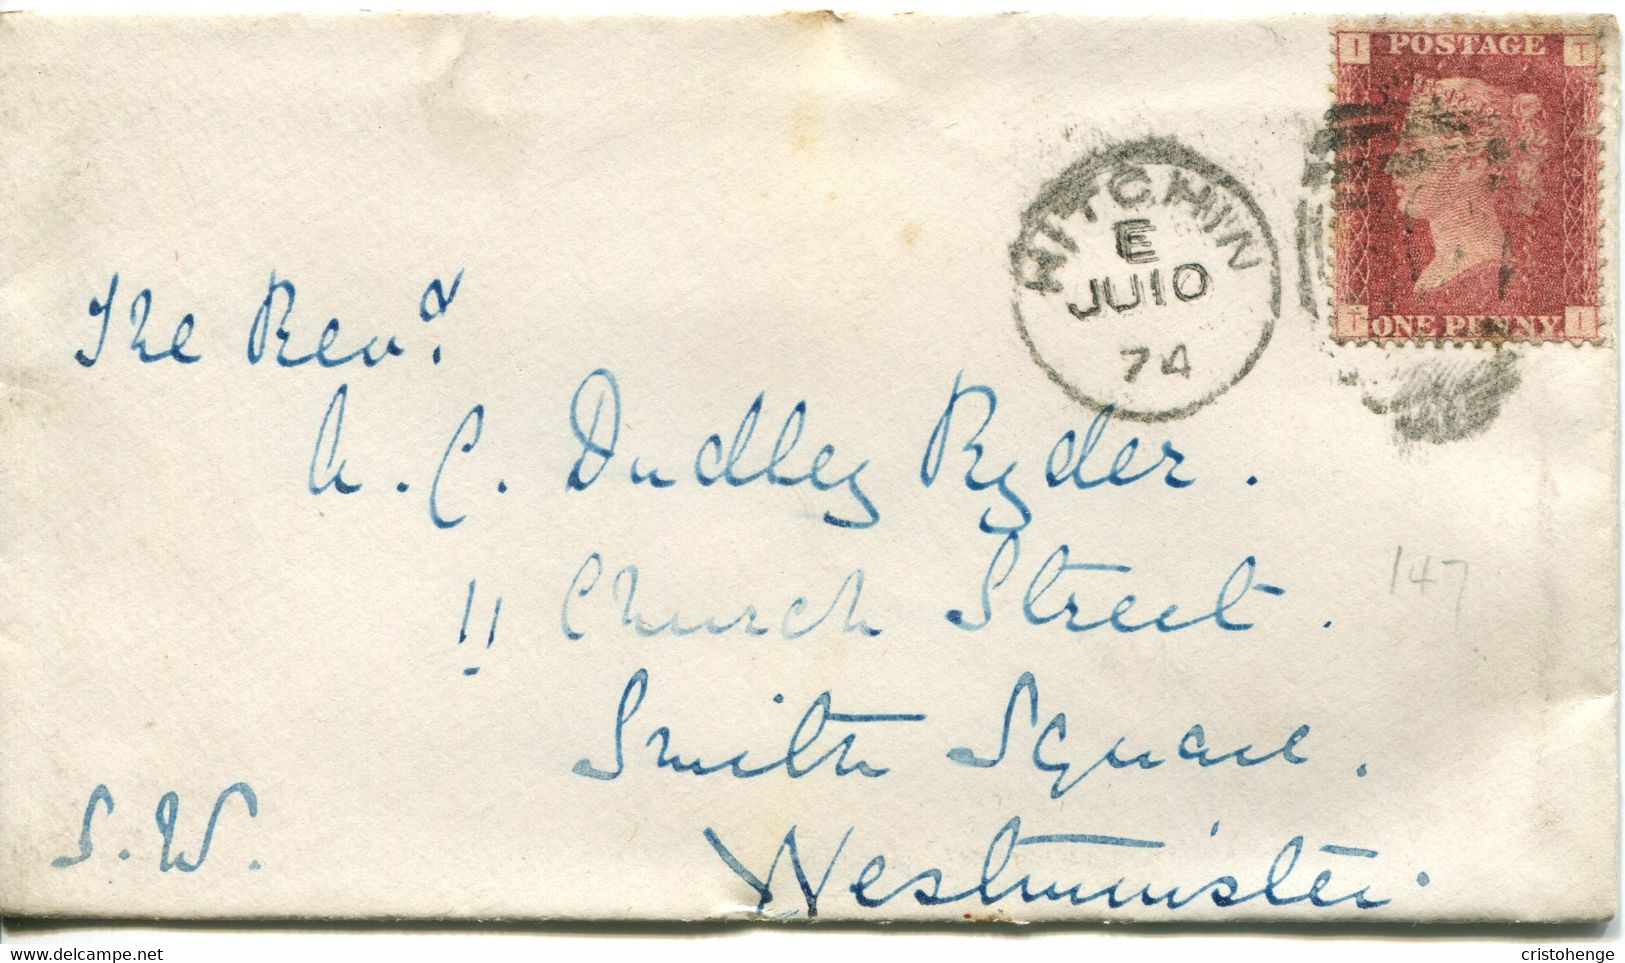 I POSTAGE T
T ONE PENNY I
HITCHIN
E
JU10
74
The Revd.
A. C. Dudley Ryder.
11 Church Street.
Smith Square.
Westminster.
S.W.
147
delcampe.net
cristohenge